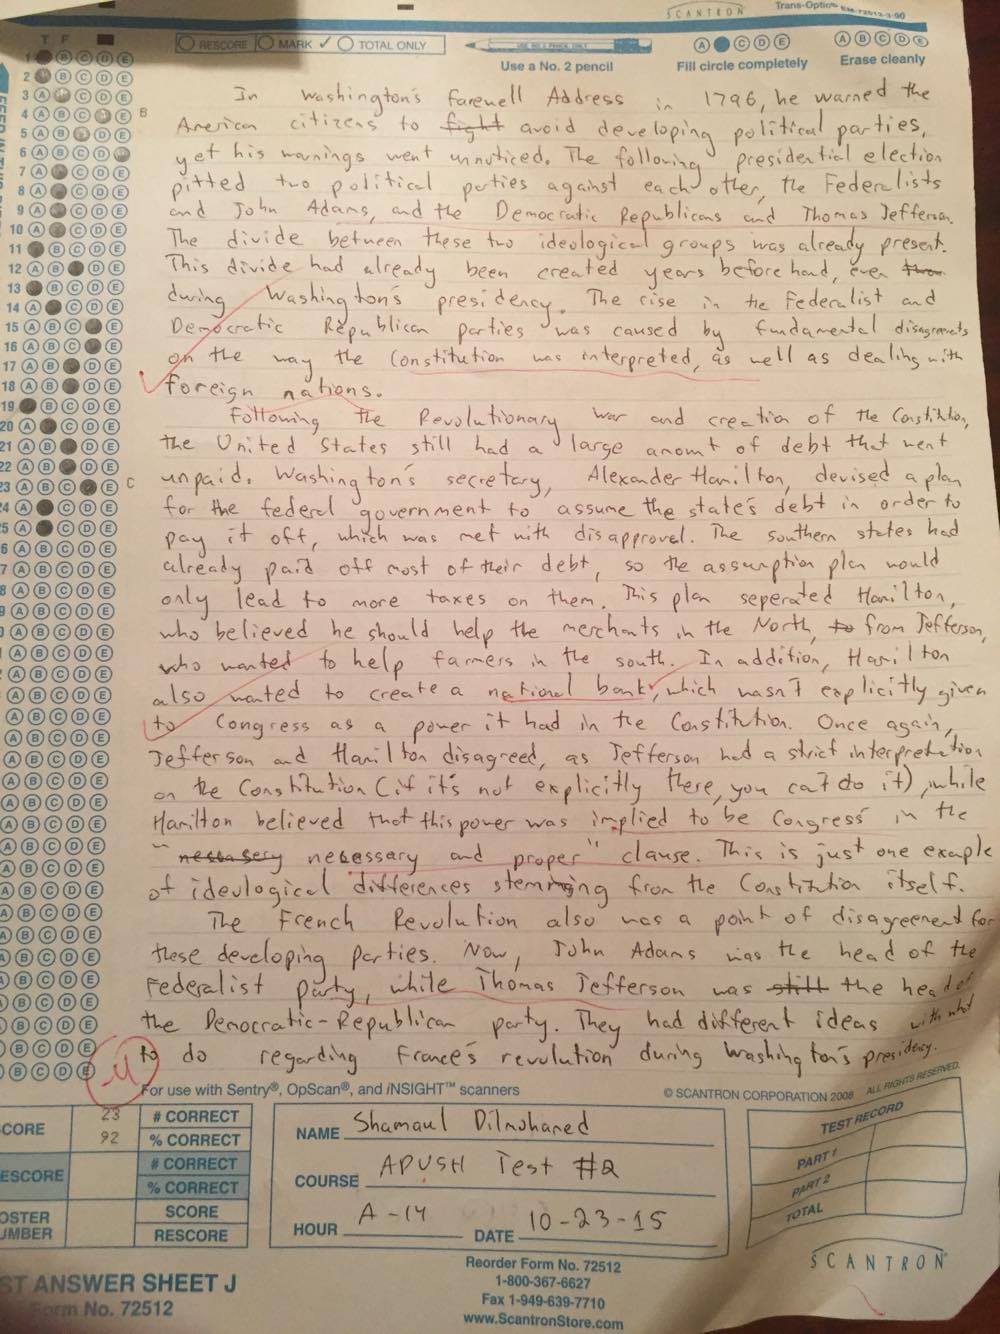 SCANTRON
Trans-Optic® EM-72512-3:90
RESCORE MARK ✓ TOTAL ONLY
USE NO. 2 PENCIL ONLY
Use a No. 2 pencil
A C D E
Fill circle completely
A B C D E
Erase cleanly
T F
In Washington's farewell Address in 1796, he warned the
American citizens to fight avoid developing political parties,
yet his warnings went unnoticed. The following presidential election
pitted two political parties against each other, the Federalists
and John Adams, and the Democratic Republicans and Thomas Jefferson.
The divide between these two ideological groups was already present.
This divide had already been created years before hand, even tho
during Washington's presidency. The rise in the Federalist and
Democratic Republican parties was caused by fundamental disagreements
on the way the Constitution was interpreted, as well as dealing with
foreign nations.
Following the Revolutionary war and creation of the Constitution,
the United States still had a large amount of debt that went
unpaid. Washington's secretary, Alexander Hamilton, devised a plan
for the federal government to assume the state's debt in order to
pay it off, which was met with disapproval. The southern states had
already paid off most of their debt, so the assumption plan would
only lead to more taxes on them. This plan seperated Hamilton,
who believed he should help the merchants in the North, to from Jefferson,
who wanted to help farmers in the south. In addition, Hamilton
also wanted to create a national bank, which wasn't explicitly given
to Congress as a power it had in the Constitution. Once again,
Jefferson and Hamilton disagreed, as Jefferson had a strict interpretation
on the Constitution (if it's not explicitly there, you cat do it), while
Hamilton believed that this power was implied to be Congress' in the
"nessasery necessary and proper" clause. This is just one example
of ideological differences stemming from the Constitution itself.
The French Revolution also was a point of disagreement for
these developing parties. Now, John Adams was the head of the
Federalist party, while Thomas Jefferson was still the head of
the Democratic-Republican party. They had different ideas with what
to do regarding France's revolution during Washington's presidency.
-4
For use with Sentry®, OpScan®, and iNSIGHT™ scanners
© SCANTRON CORPORATION 2008 ALL RIGHTS RESERVED.
CORE 23 # CORRECT
92 % CORRECT
ESCORE # CORRECT
% CORRECT
OSTER SCORE
UMBER RESCORE
NAME Shamaul Dilmohamed
COURSE APUSH Test #2
HOUR A-14 DATE 10-23-15
TEST RECORD
PART 1
PART 2
TOTAL
SCANTRON®
ST ANSWER SHEET J
Form No. 72512
Reorder Form No. 72512
1-800-367-6627
Fax 1-949-639-7710
www.ScantronStore.com